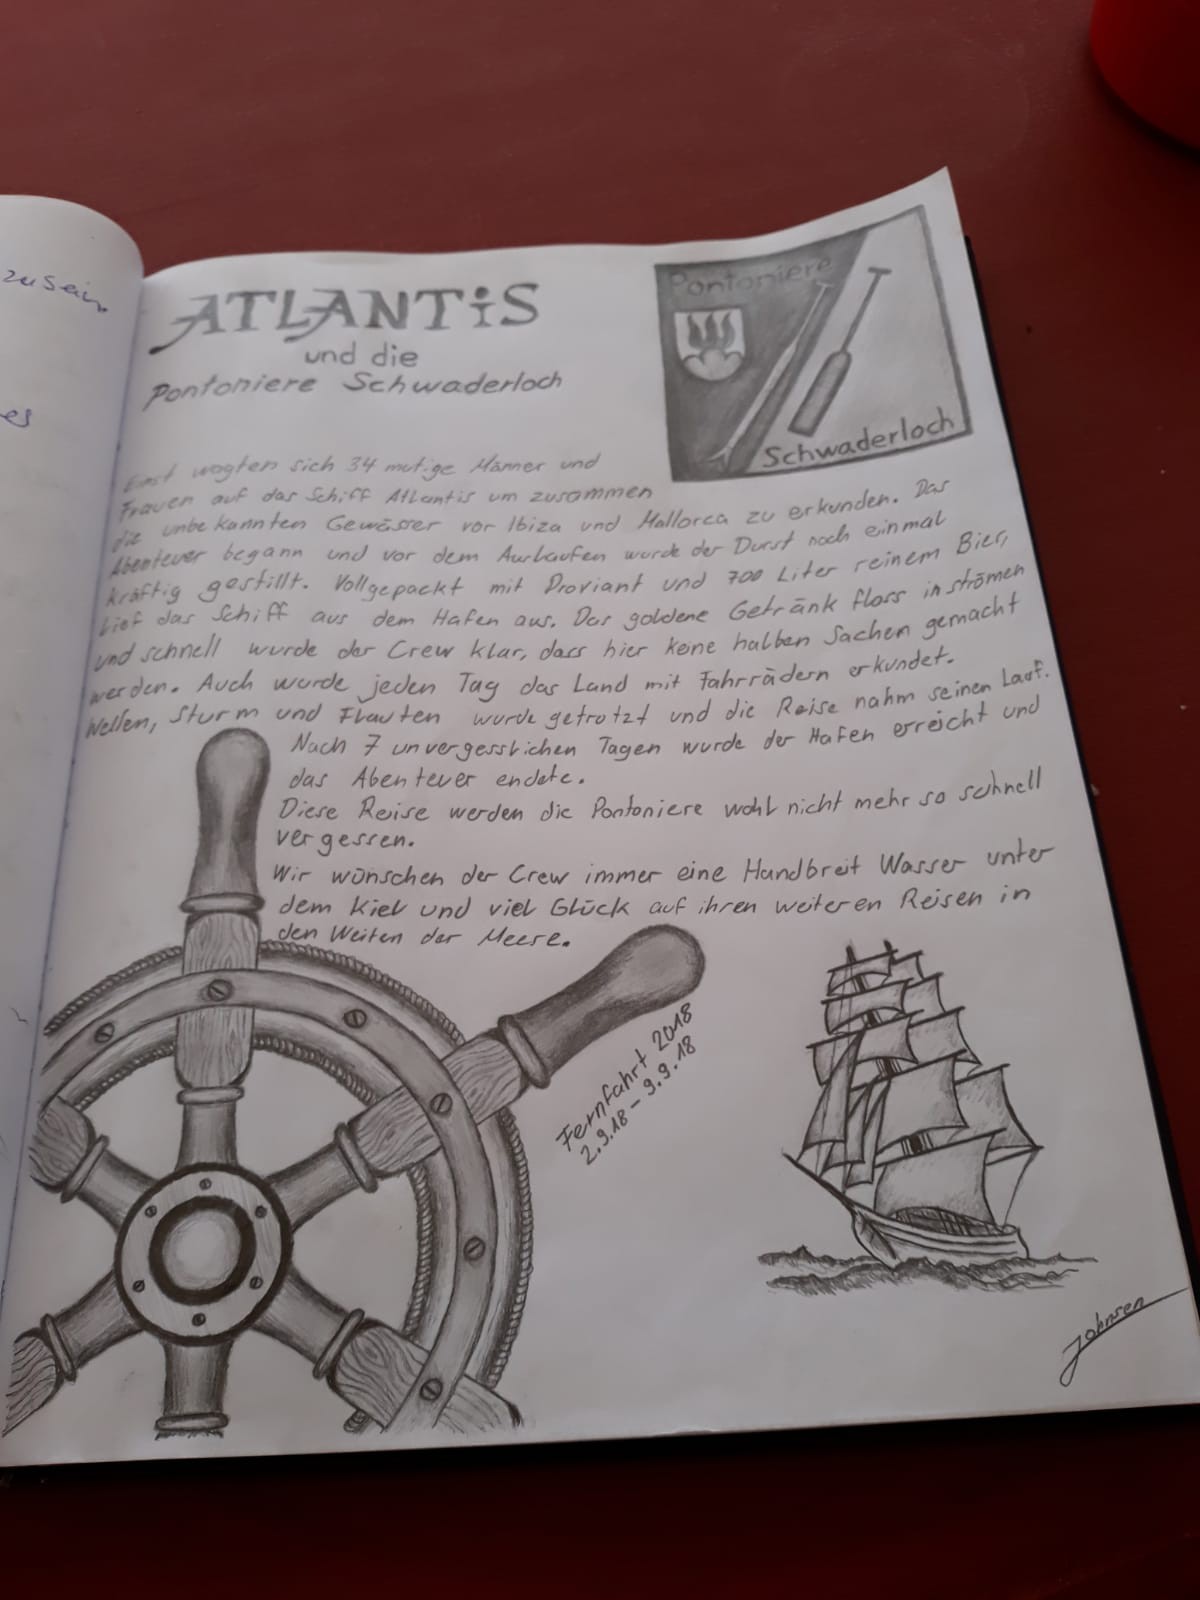 zu sein,
es
ATLANTiS
und die
Pontoniere Schwaderloch
Pontoniere
Schwaderloch
Einst wagten sich 34 mutige Männer und
Frauen auf das Schiff Atlantis um zusammen
die unbekannten Gewässer vor Ibiza und Mallorca zu erkunden. Das
Abenteuer begann und vor dem Auslaufen wurde der Durst noch einmal
kräftig gestillt. Vollgepackt mit Proviant und 700 Liter reinem Bier,
lief das Schiff aus dem Hafen aus. Das goldene Getränk floss in strömen
und schnell wurde der Crew klar, dass hier keine halben Sachen gemacht
werden. Auch wurde jeden Tag das Land mit Fahrrädern erkundet.
Wellen, Sturm und Flauten wurde getrotzt und die Reise nahm seinen Lauf.
Nach 7 unvergesslichen Tagen wurde der Hafen erreicht und
das Abenteuer endete.
Diese Reise werden die Pontoniere wohl nicht mehr so schnell
vergessen.
Wir wünschen der Crew immer eine Handbreit Wasser unter
dem Kiel und viel Glück auf ihren weiteren Reisen in
den Weiten der Meere.
Fernfahrt 2018
2.9.18 – 9.9.18
Johnsen